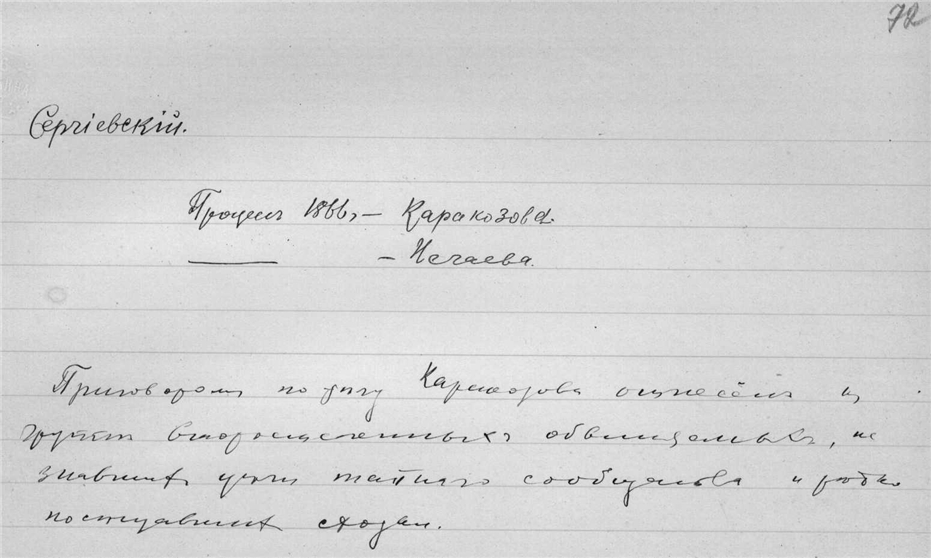 72
Сергіевскій.
Процессъ 1866 г. — Каракозова.
— Нечаева.
Приговоромъ по делу Каракозова отнесёнъ къ
группѣ второстепенныхъ обвиняемыхъ, не
знавшихъ цели тайнаго сообщества и редко
посещавшихъ сходки.